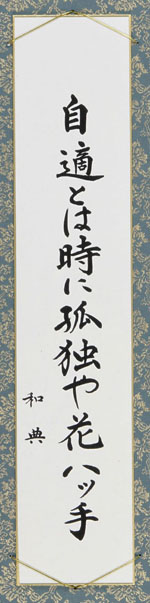 自適とは時に孤独や花八ッ手
和典